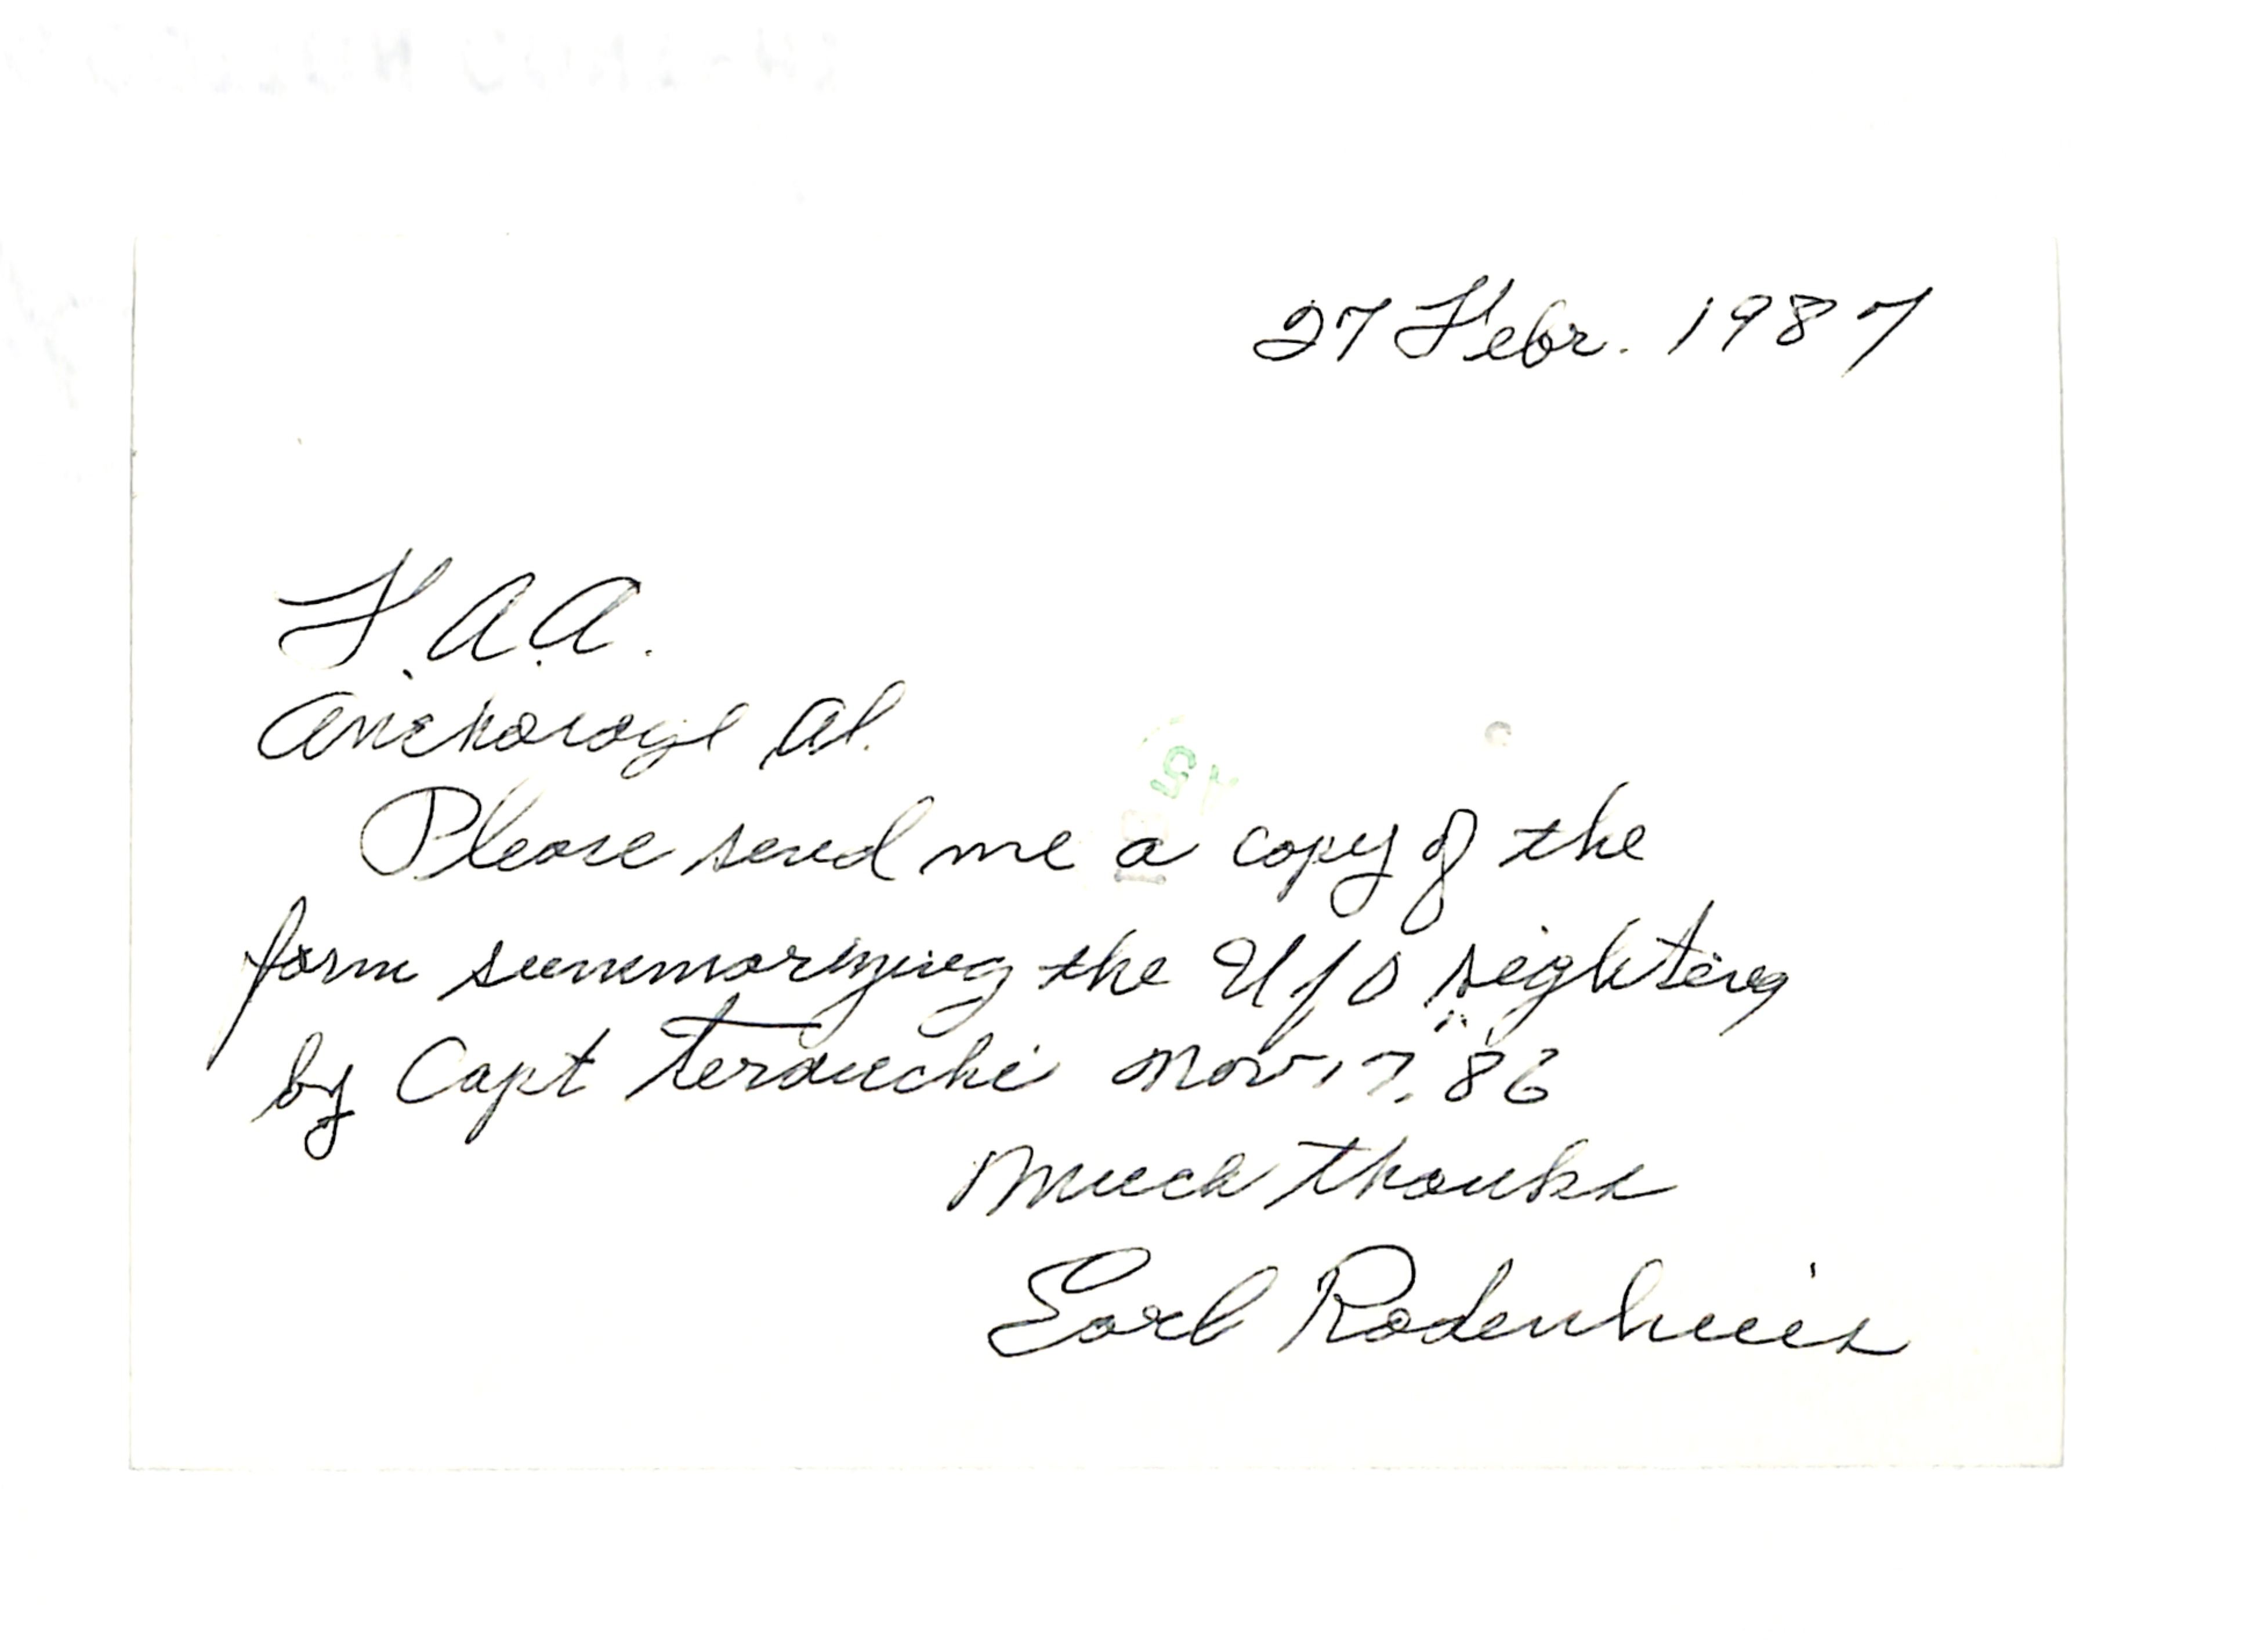 27 Febr. 1987
F.A.A.
Anchorage Al.
Please send me a copy of the
form summarizing the Ufo sighting
by Capt Terauchi Nov 17, 86
Much thanks
Earl Rodenhuis